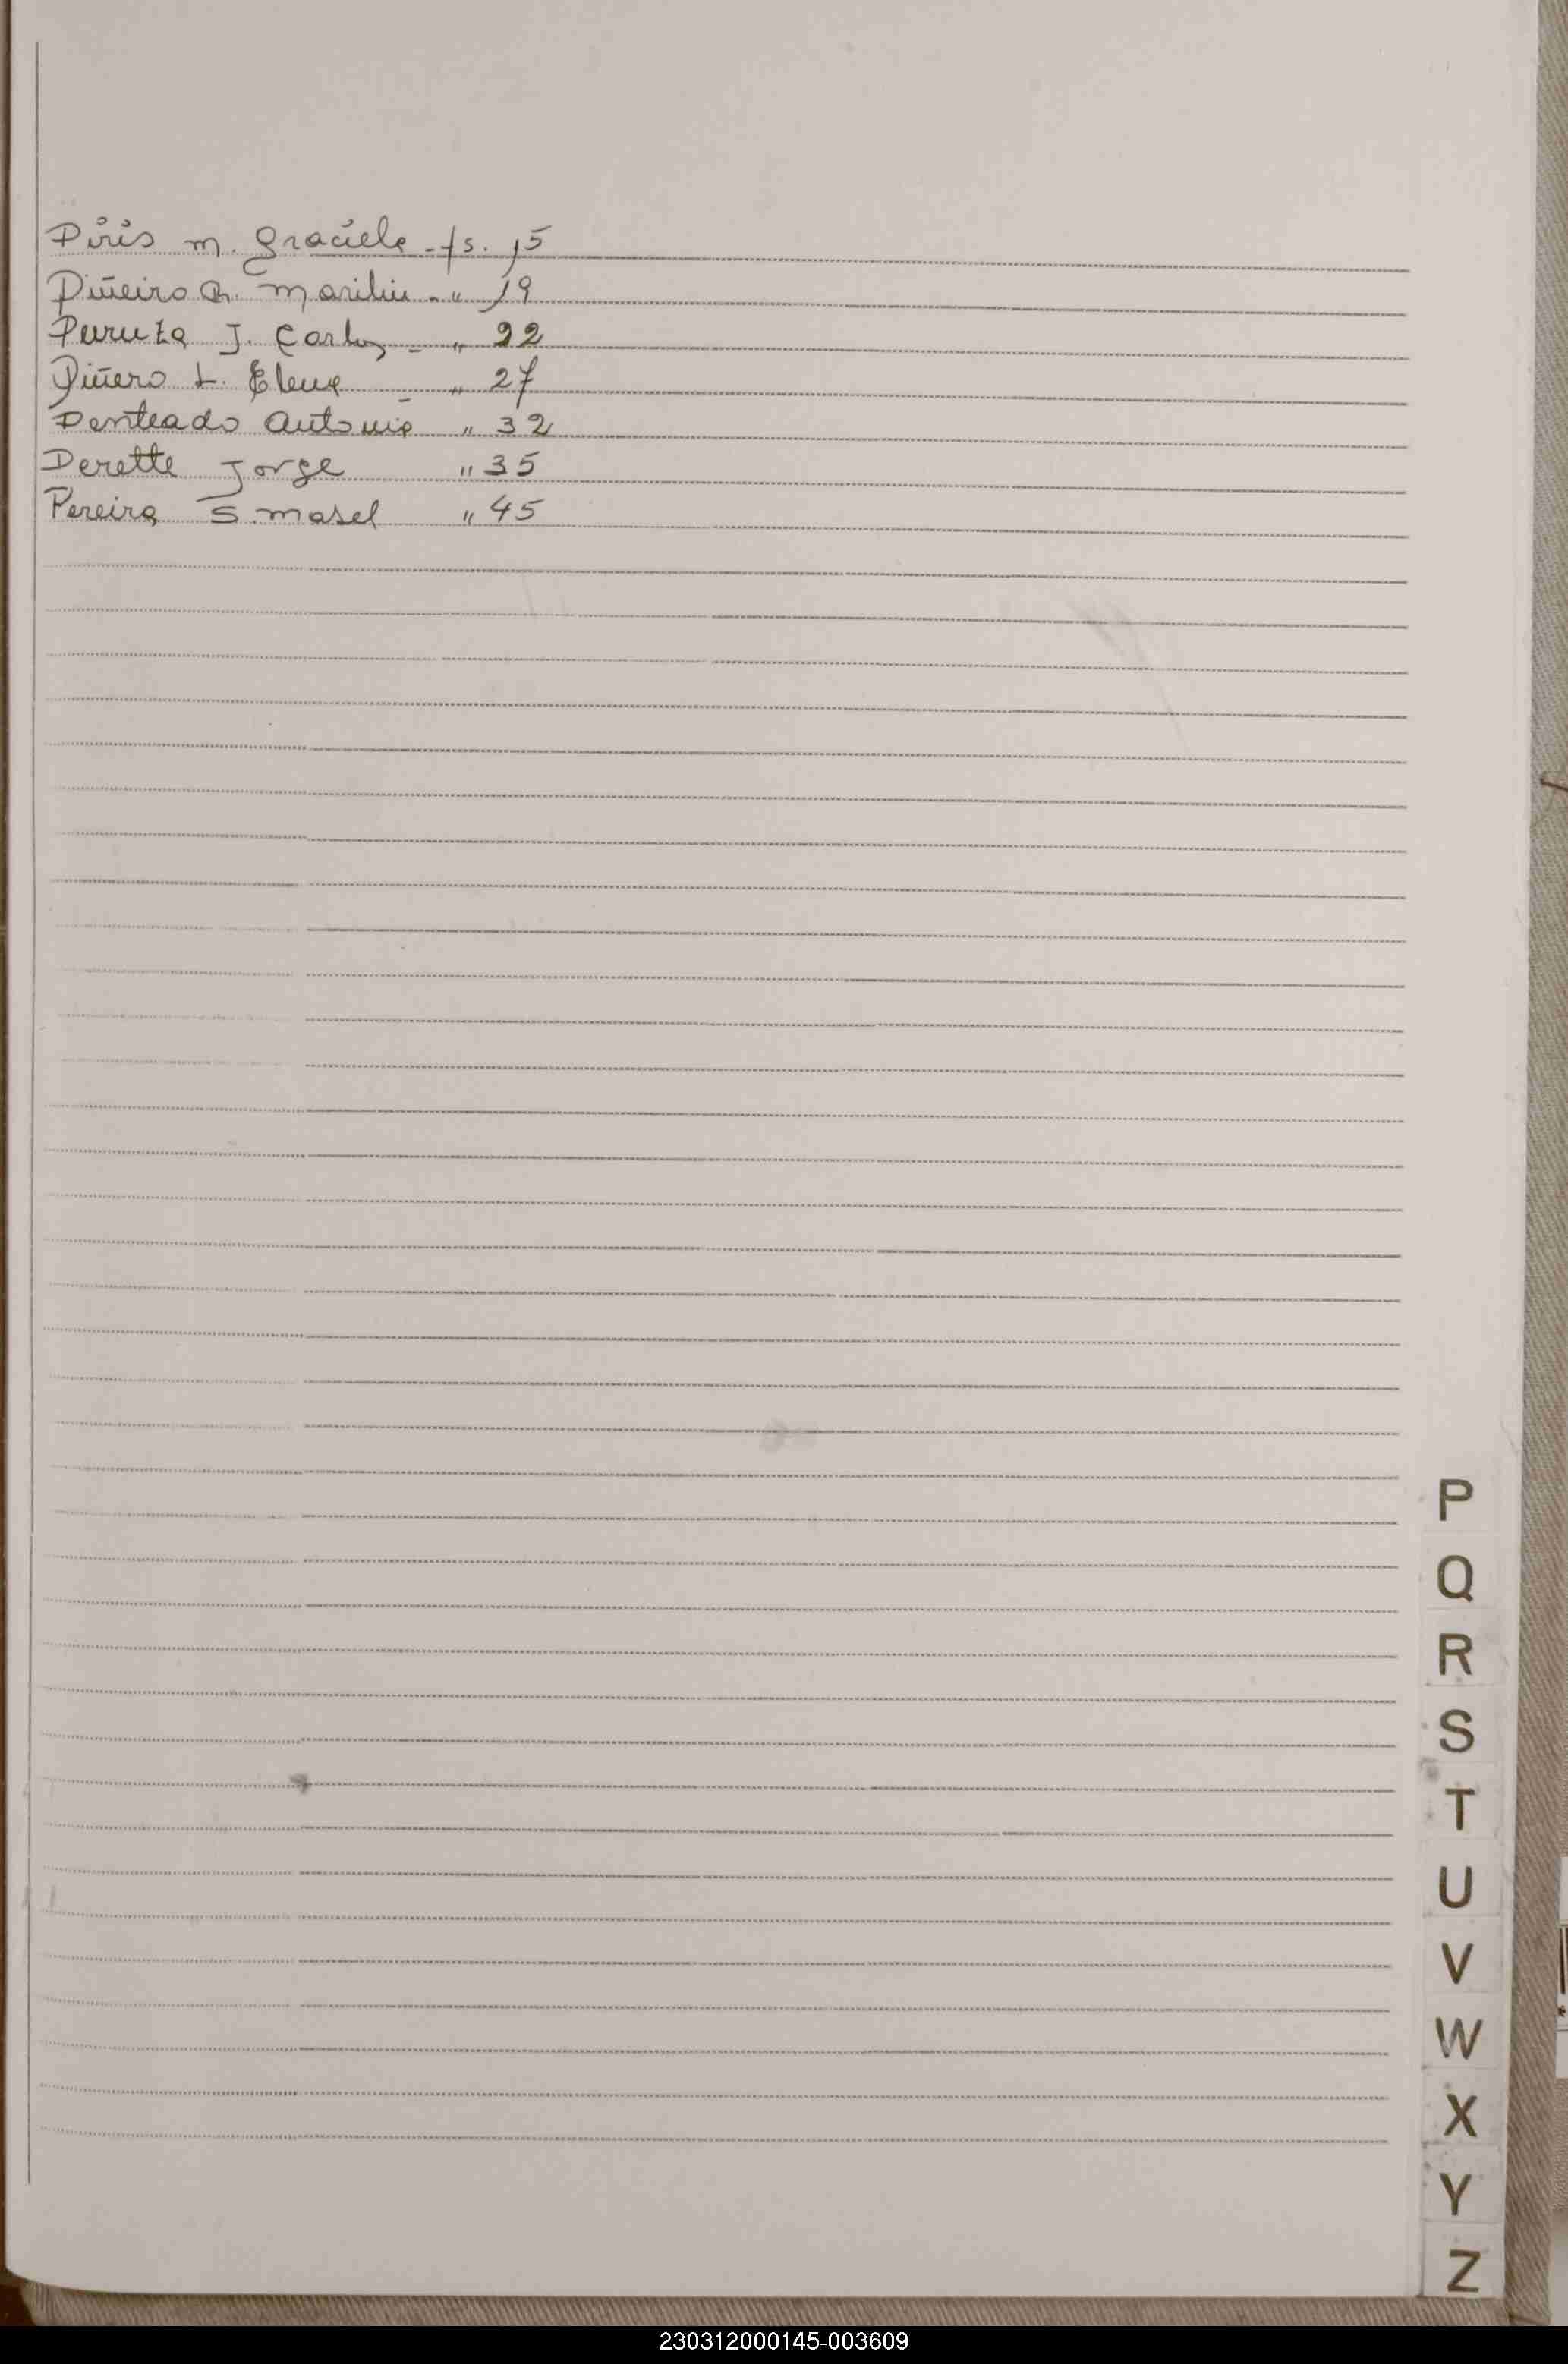 Piris M. Graciela - fs. 15
Piñeiro R. Marilin - " 19
Peruta J. Carlos - " 22
Piñero L. Elena - " 27
Penteado Antonio " 32
Perette Jorge " 35
Pereira S. Masel " 45
P
Q
R
S
T
U
V
W
X
Y
Z
230312000145-003609